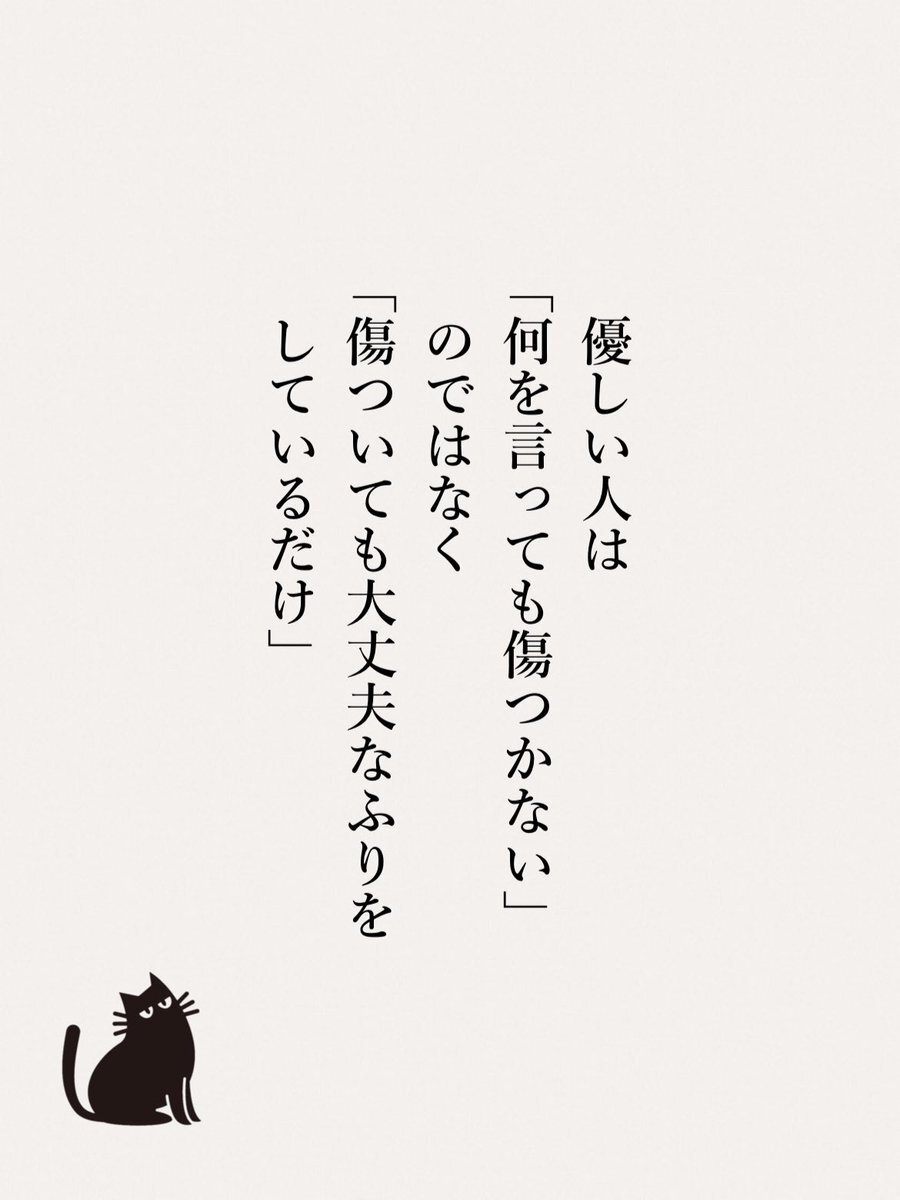 優しい人は
「何を言っても傷つかない」
のではなく
「傷ついても大丈夫なふりを
している​だけ」